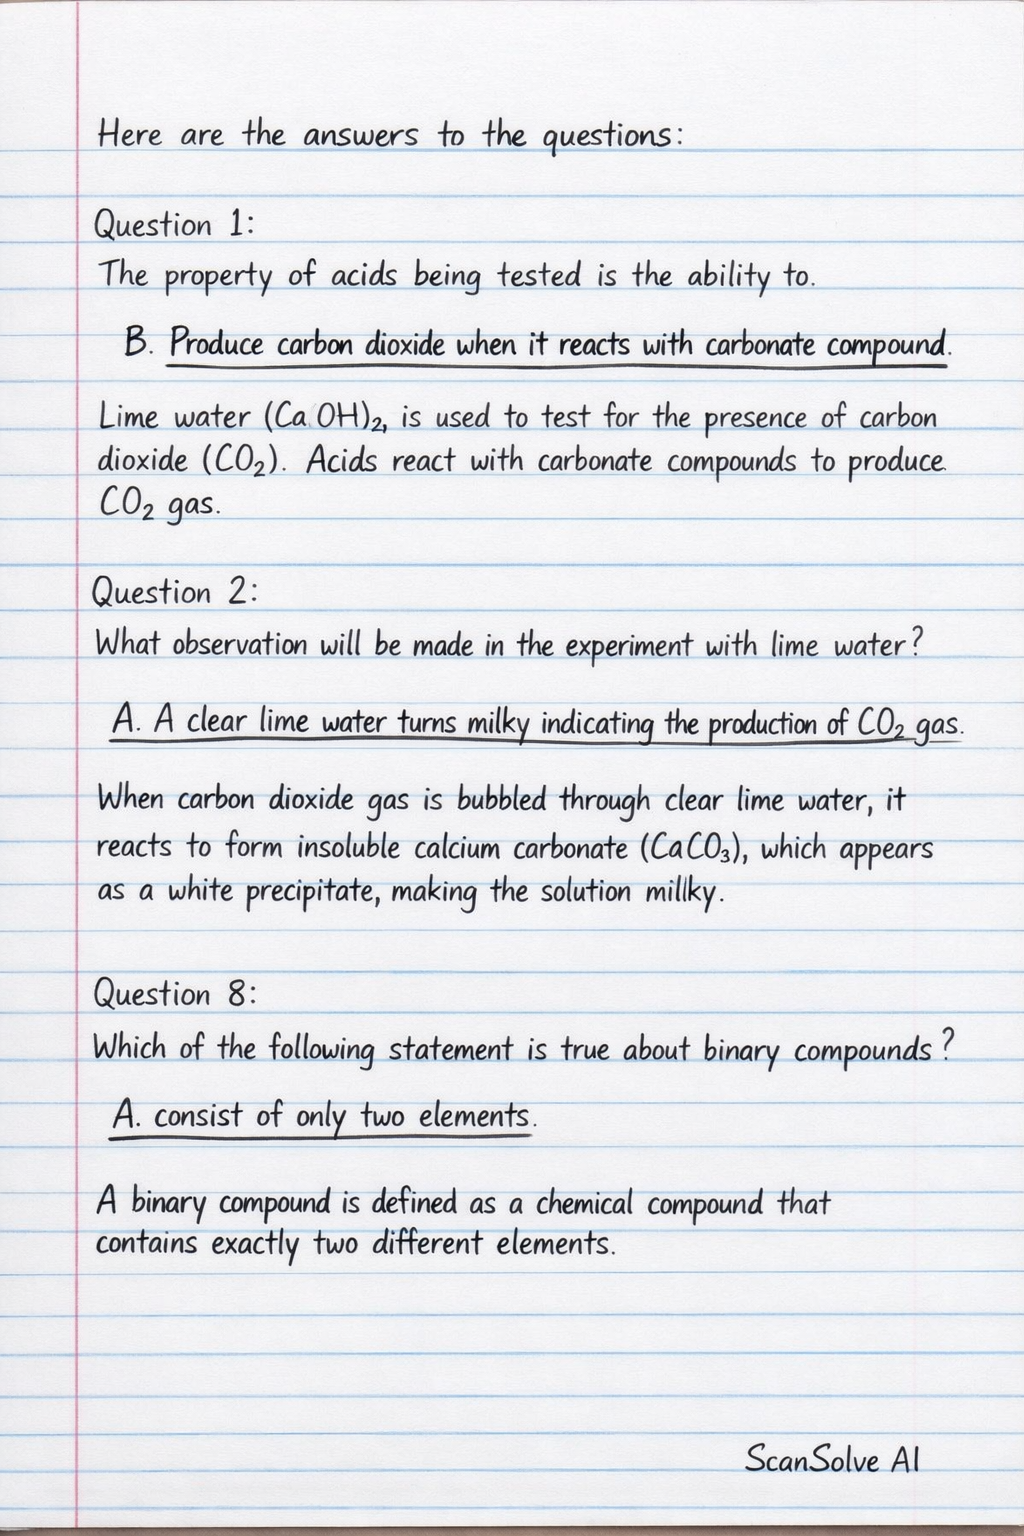 Here are the answers to the questions:
Question 1:
The property of acids being tested is the ability to.
B. Produce carbon dioxide when it reacts with carbonate compound.
Lime water (Ca OH)₂, is used to test for the presence of carbon
dioxide (CO₂). Acids react with carbonate compounds to produce
CO₂ gas.
Question 2:
What observation will be made in the experiment with lime water?
A. A clear lime water turns milky indicating the production of CO₂ gas.
When carbon dioxide gas is bubbled through clear lime water, it
reacts to form insoluble calcium carbonate (CaCO₃), which appears
as a white precipitate, making the solution millky.
Question 8:
Which of the following statement is true about binary compounds?
A. consist of only two elements.
A binary compound is defined as a chemical compound that
contains exactly two different elements.
ScanSolve AI